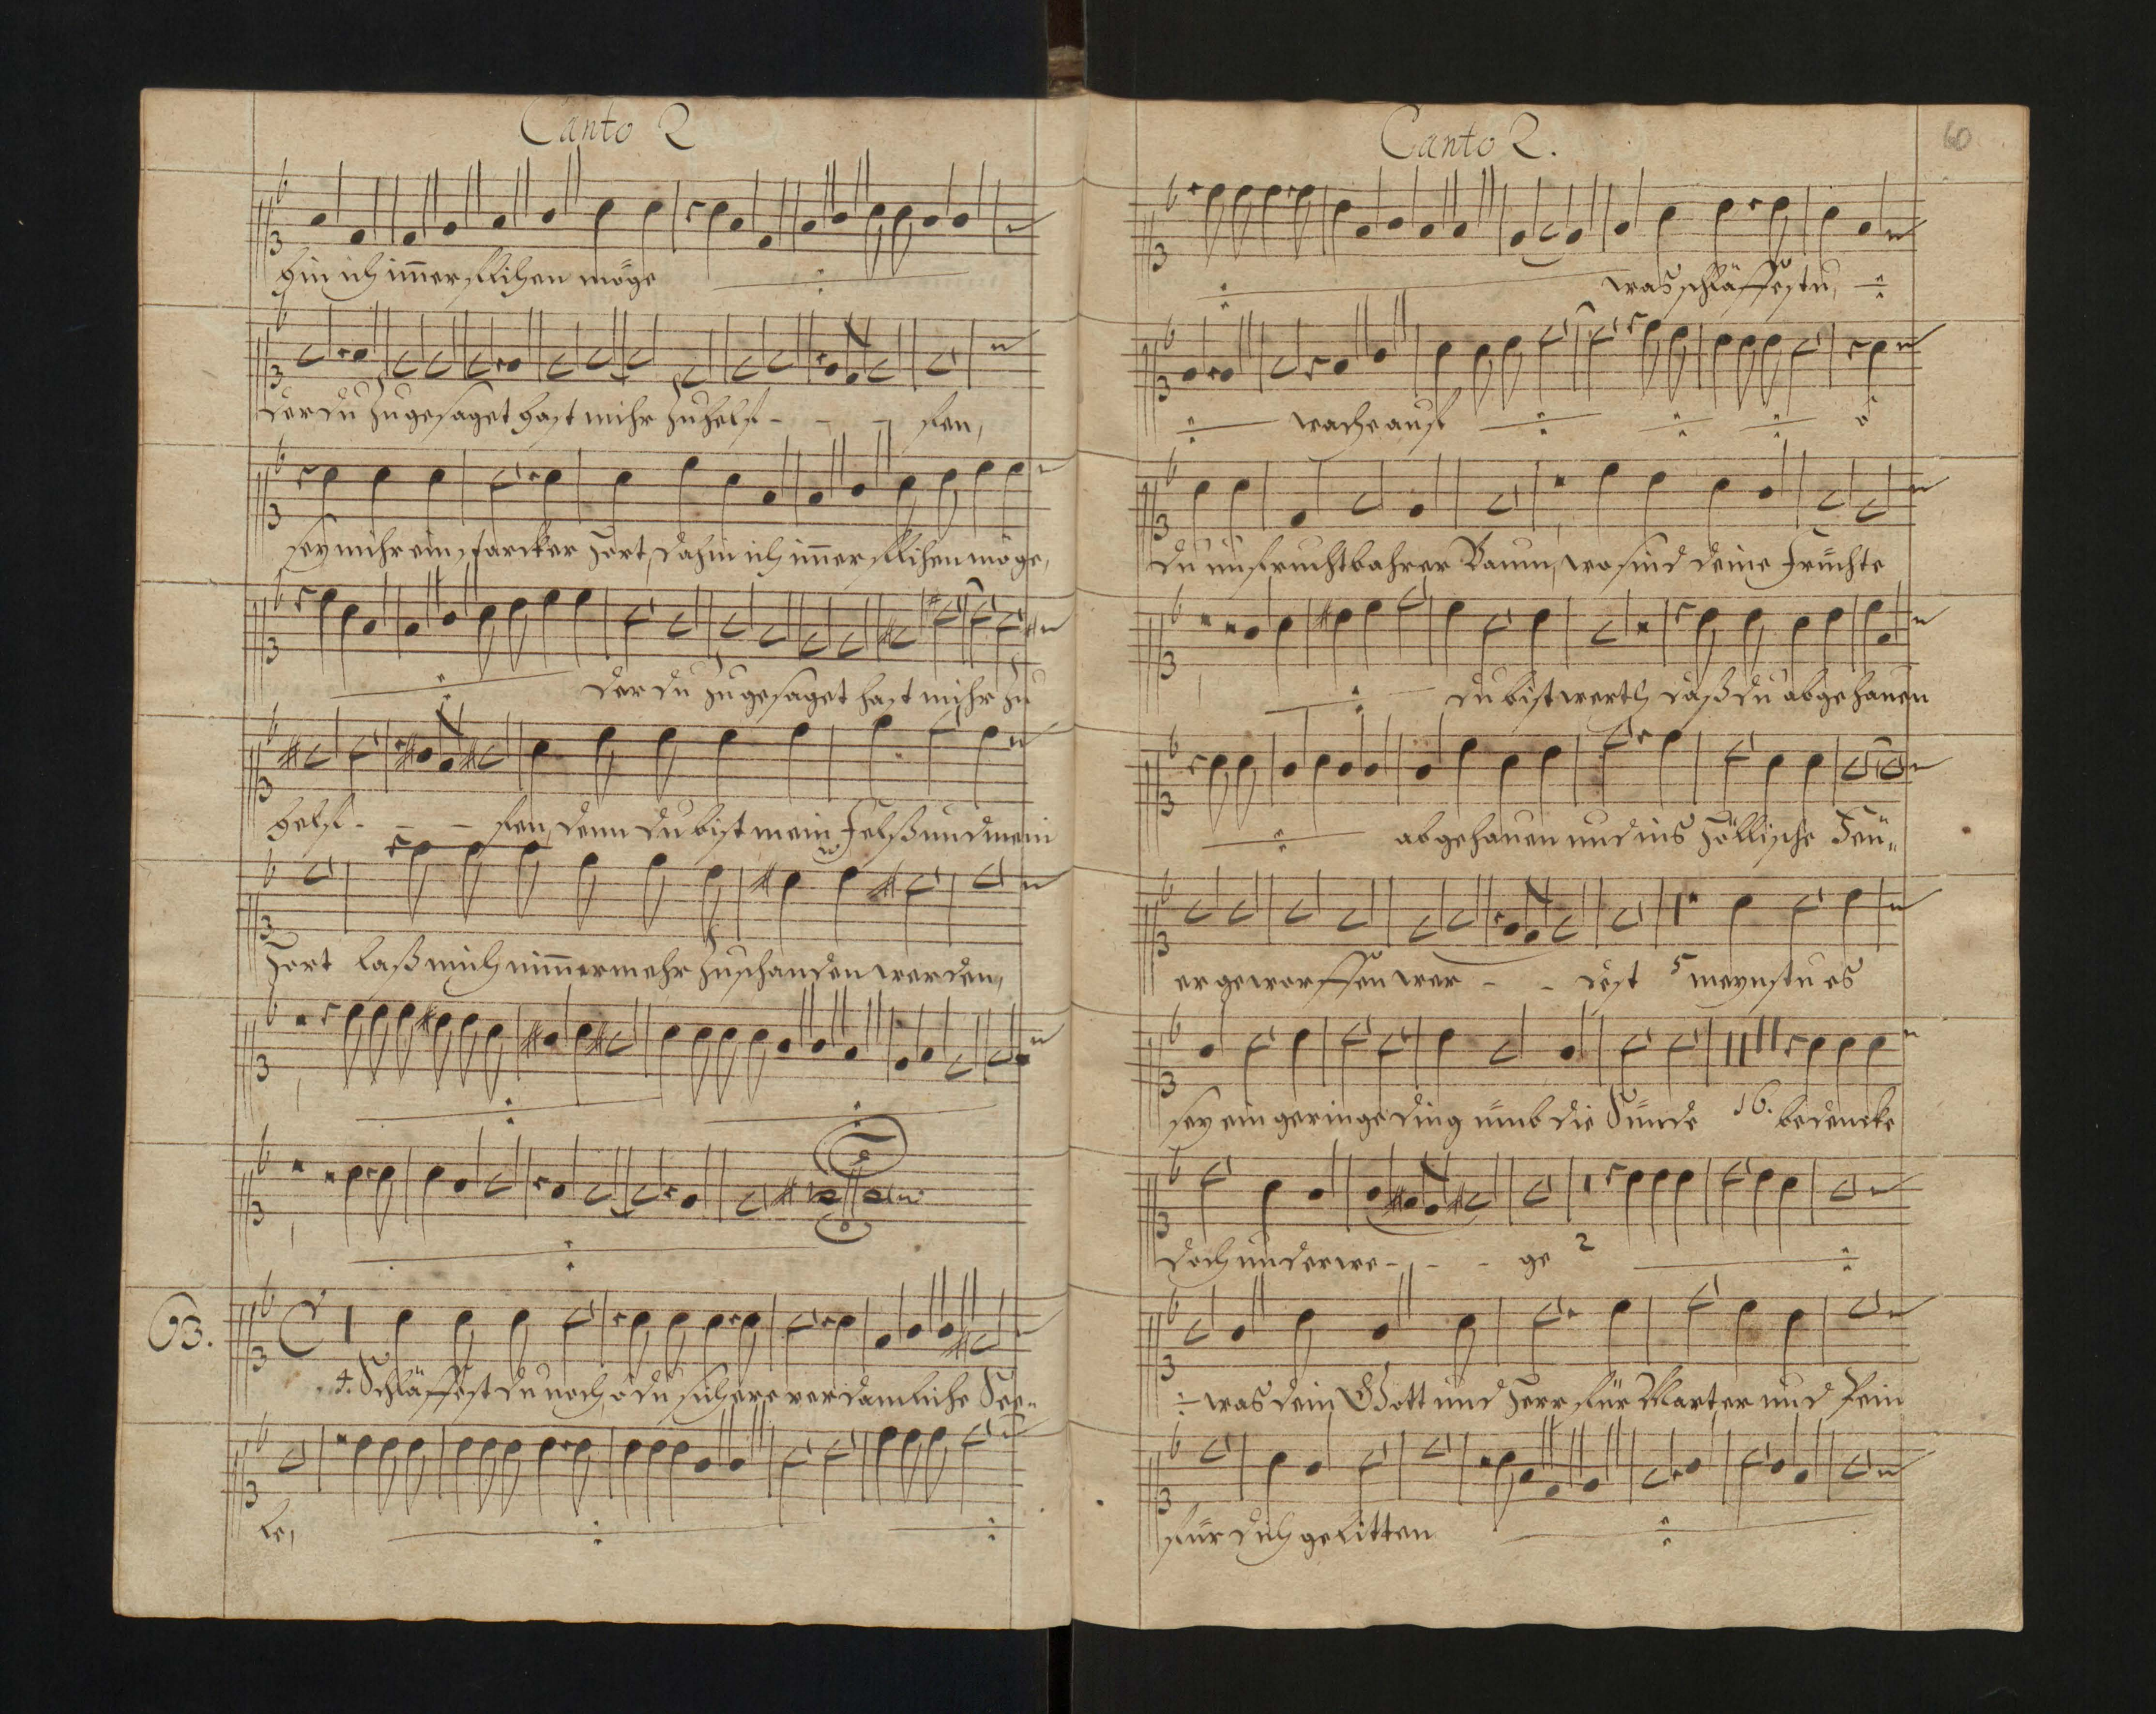 Canto 2
hin ich im̄er fliehen möge
der du zugesaget hast mihr zu helf - - - fen,
sey mihr ein starcker Hort, dahin ich im̄er fliehen möge,
der du zugesaget hast mihr zu
helf - - - fen, denn du bist mein Felß und mein
Hort laß mich nim̄ermehr zuschanden werden,
93.
4. Schläffest du noch, o du sichere verdamliche See-
le,
Canto 2.
60
was schläffestu,
wache auf ô
du unfruchtbahrer Baum, wo sind deine Früchte
du bist werth daß du abgehauen
abgehauen und ins Höllische Feü-
er geworffen wer - - dest 5 meynstu es
sey ein geringe ding ümb die Sünde 16. bedencke
doch und erwe - - - ge 2
was dein Gott und Herr für Marter und Pein
für dich gelitten